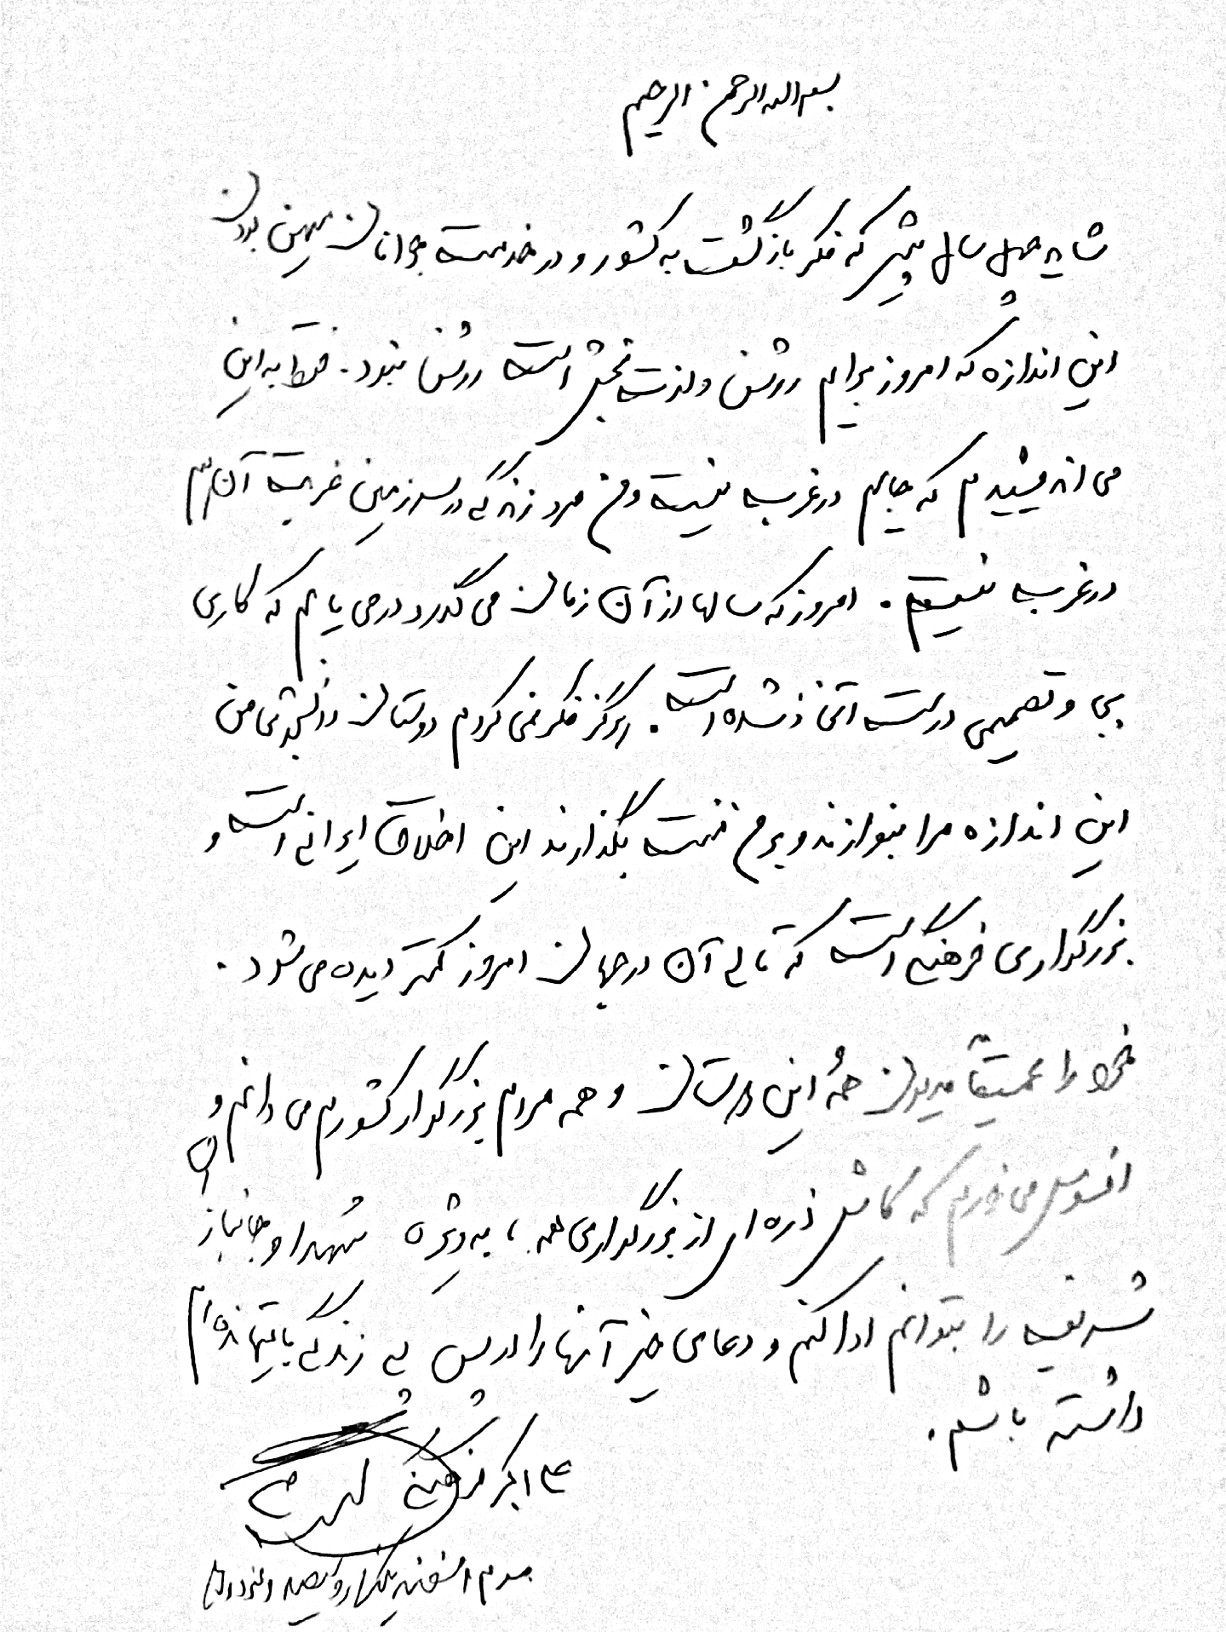 بسم الله الرحمن الرحیم
شاید چهل سال پیش که فکر بازگشت به کشور و در خدمت جوانان میهن بودن
این اندازه که امروز برایم روشن و لذت بخش است روشن نبود. فقط به این
می اندیشیدم که جایم در غرب نیست و من مرد زندگی در سرزمین غربت آن هم
در غرب نیستم. امروز که سالها از آن زمان می گذرد درمی یابم که کاری
بجا و تصمیمی درست اتخاذ شده است. هرگز فکر نمی کردم دوستان دانشجوی من
این اندازه مرا بنوازند و بر من منت بگذارند این اخلاق ایرانی است و
بزرگواری فرهنگی است که تالی آن در جهان امروز کمتر دیده می شود.
خود را عمیقاً مدیون همهٔ این دوستان و همه مردم بزرگوار کشورم می دانم و
افسوس می خورم که کاش ذره ای از بزرگواری همه، به ویژه شهدا و جانباز
شریف را بتوانم ادا کنم و دعای خیر آنها را در پس زندگی باقیمانده ام
داشته باشم.
علی اکبر فرهنگی